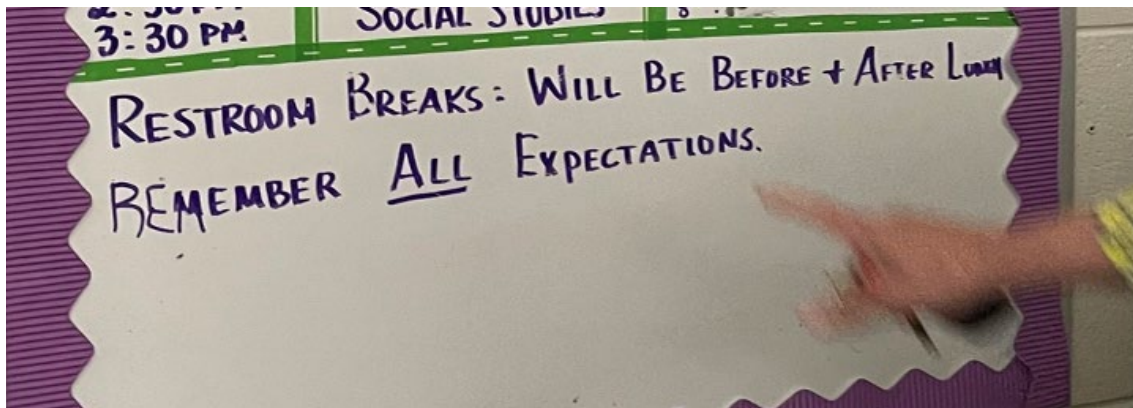 3:30 PM
SOCIAL STUDIES
RESTROOM BREAKS: WILL BE BEFORE + AFTER LUNCH
REMEMBER ALL EXPECTATIONS.